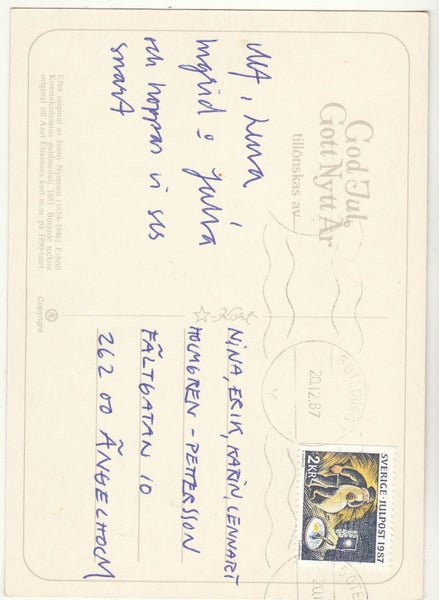 God Jul
Gott Nytt År
tillönskas av
Ulf, Lena
Ingrid o Julia
och hoppas vi ses
snart
Efter original av Jenny Nyström (1854-1946). Erhöll
Konstakademins guldmedalj 1881. Började teckna
original till Axel Eliassons kort m.m. på 1890-talet
Copyright
Kort
NINA, ERIK, KARIN, LENNART
HOLMGREN-PETTERSSON
FÄLTGATAN 10
262 00 ÄNGELHOLM
GÖTEBORG
20.12.87
SVERIGE·JULPOST 1987
2KR